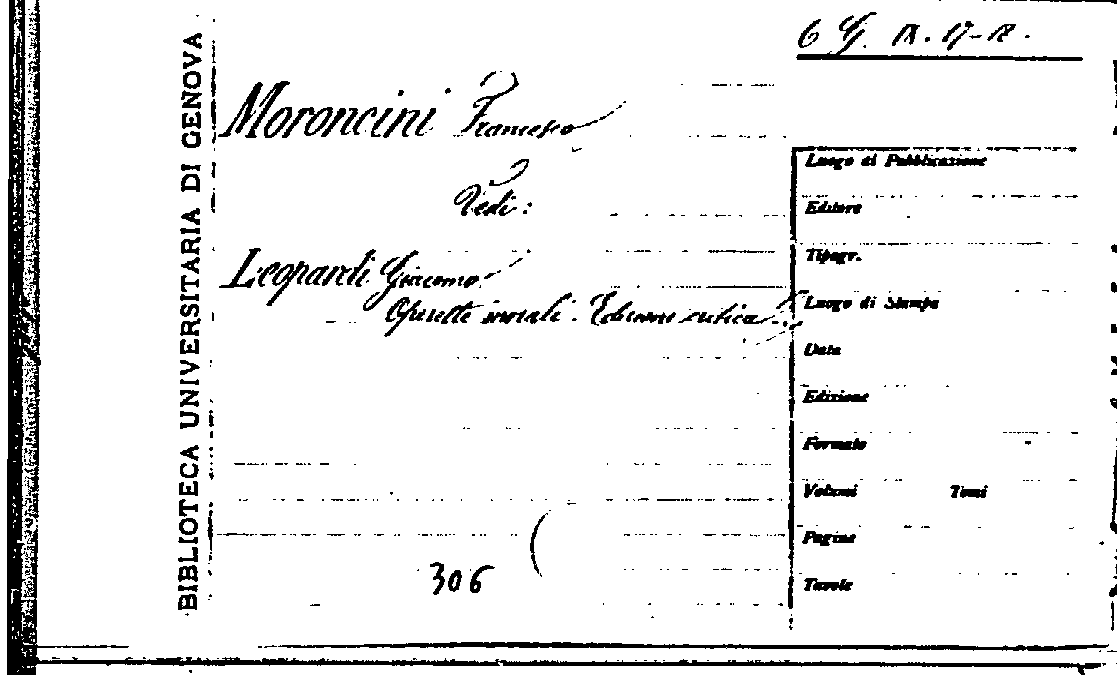 BIBLIOTECA UNIVERSITARIA DI GENOVA
6 G. IX. 17-18.
Moroncini Francesco
Vedi:
Leopardi Giacomo
Operette morali. Edizione critica...
306
Luogo di Pubblicazione
Editore
Tipogr.
Luogo di Stampa
Data
Edizione
Formato
Volumi Tomi
Pagine
Tavole